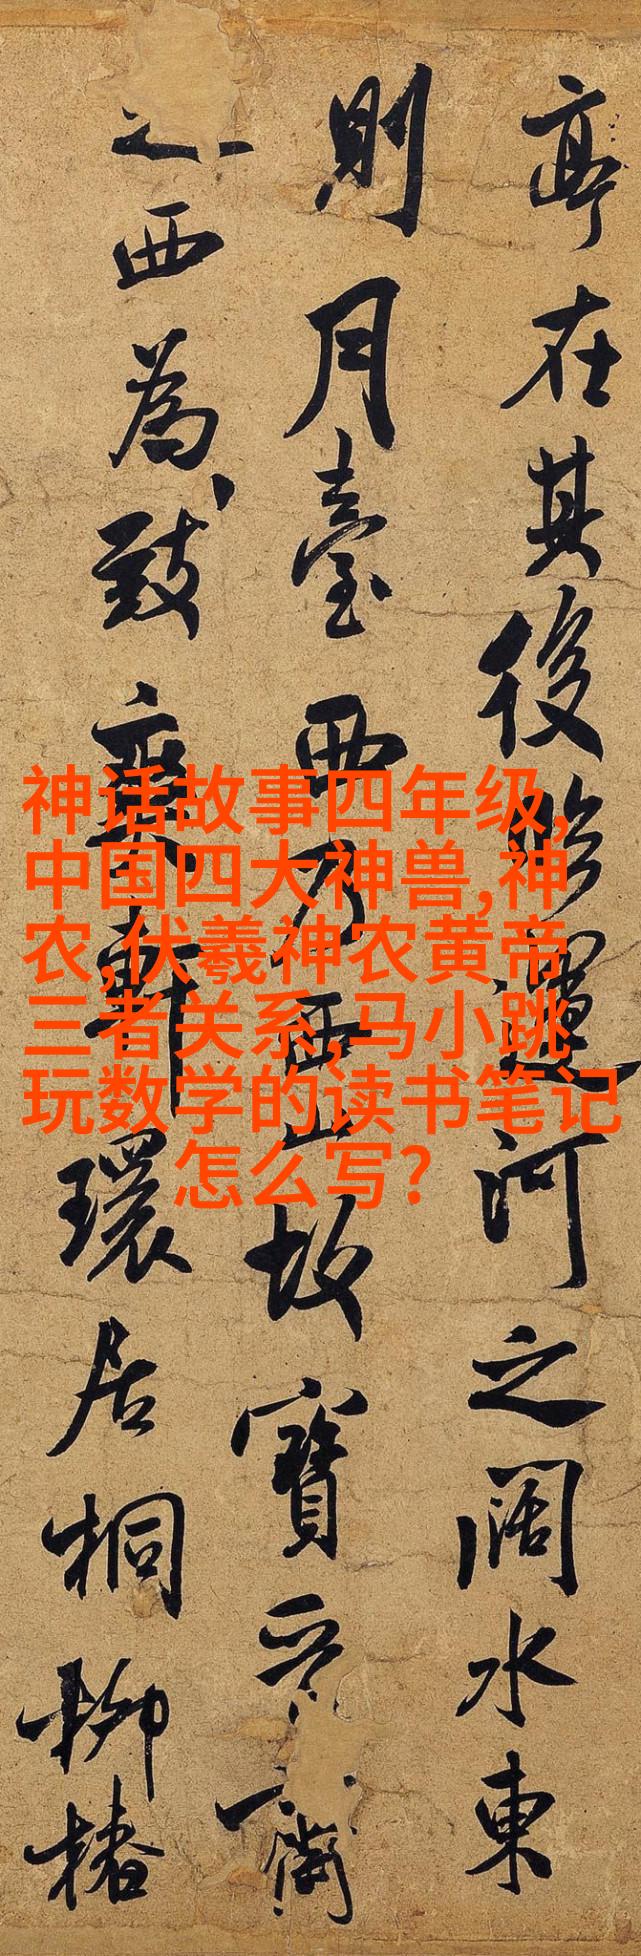 亭在其後臨運河之闊水東
則月臺西乃西山故寶晉齋
之西為致爽軒環居桐柳椿
神话故事四年级,
中国四大神兽,神
农,伏羲神农黄帝
三者关系,马小跳
玩数学的读书笔记
怎么写?